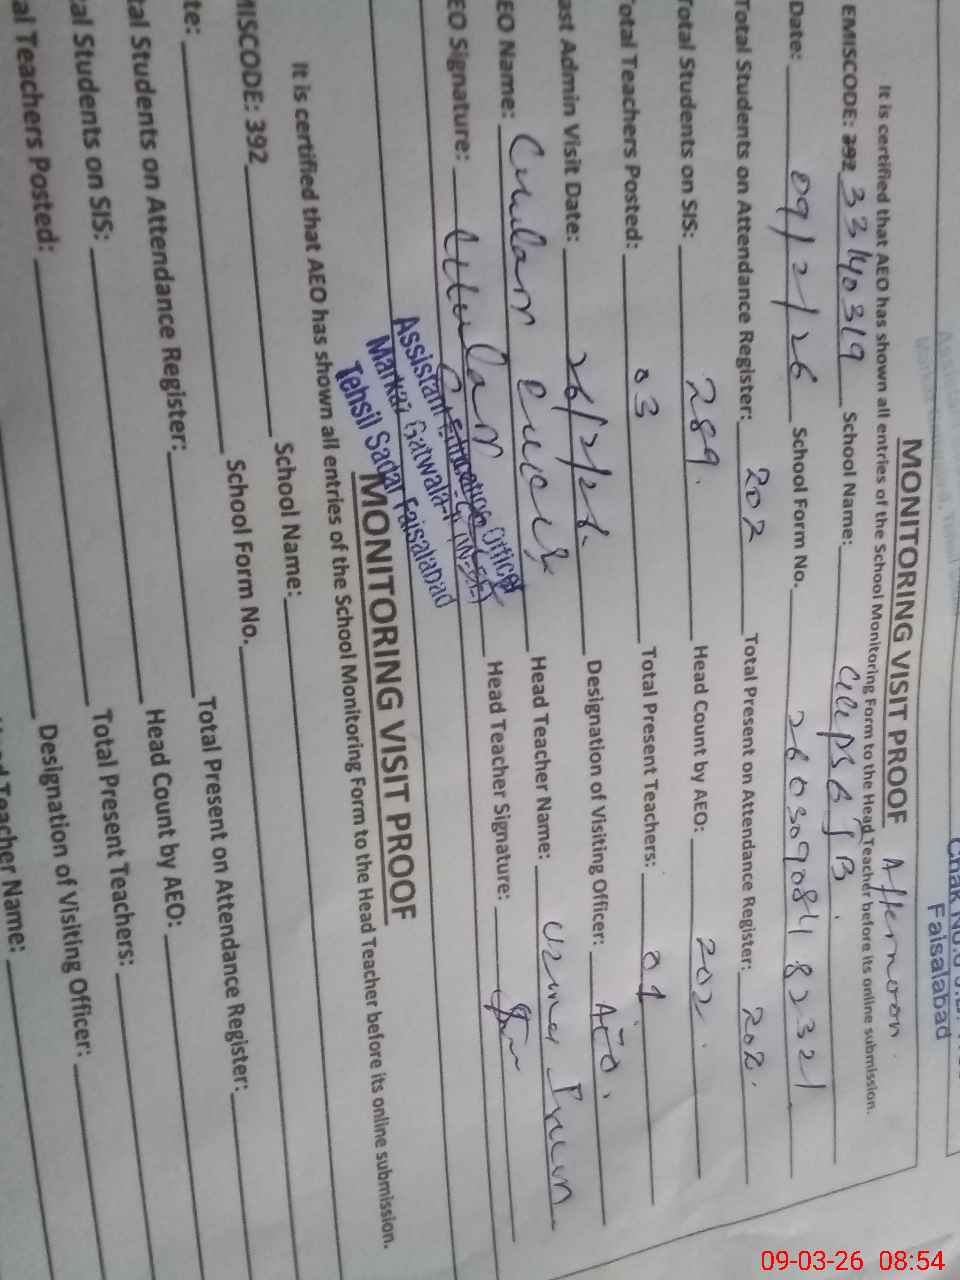 Chak No.
Faisalabad
MONITORING VISIT PROOF Afternoon
It is certified that AEO has shown all entries of the School Monitoring Form to the Head Teacher before its online submission.
EMISCODE: 392 33140319 School Name:
Date: 09/2/26 School Form No.
Total Students on Attendance Register: 202 Total Present on Attendance Register: 202.
Total Students on SIS: 289. Head Count by AEO: 202.
Total Teachers Posted: 03 Total Present Teachers: 01
ast Admin Visit Date: 26/2/26. Designation of Visiting Officer: AEO.
EO Name: Head Teacher Name: Uzma
EO Signature: Head Teacher Signature:
Assistant Education Officer
Markaz Gatwala-
Tehsil Sadar Faisalabad
MONITORING VISIT PROOF
It is certified that AEO has shown all entries of the School Monitoring Form to the Head Teacher before its online submission.
MISCODE: 392 School Name:
te: School Form No.
tal Students on Attendance Register: Total Present on Attendance Register:
tal Students on SIS: Head Count by AEO:
al Teachers Posted: Total Present Teachers:
Designation of Visiting Officer:
Teacher Name:
09-03-26 08:54